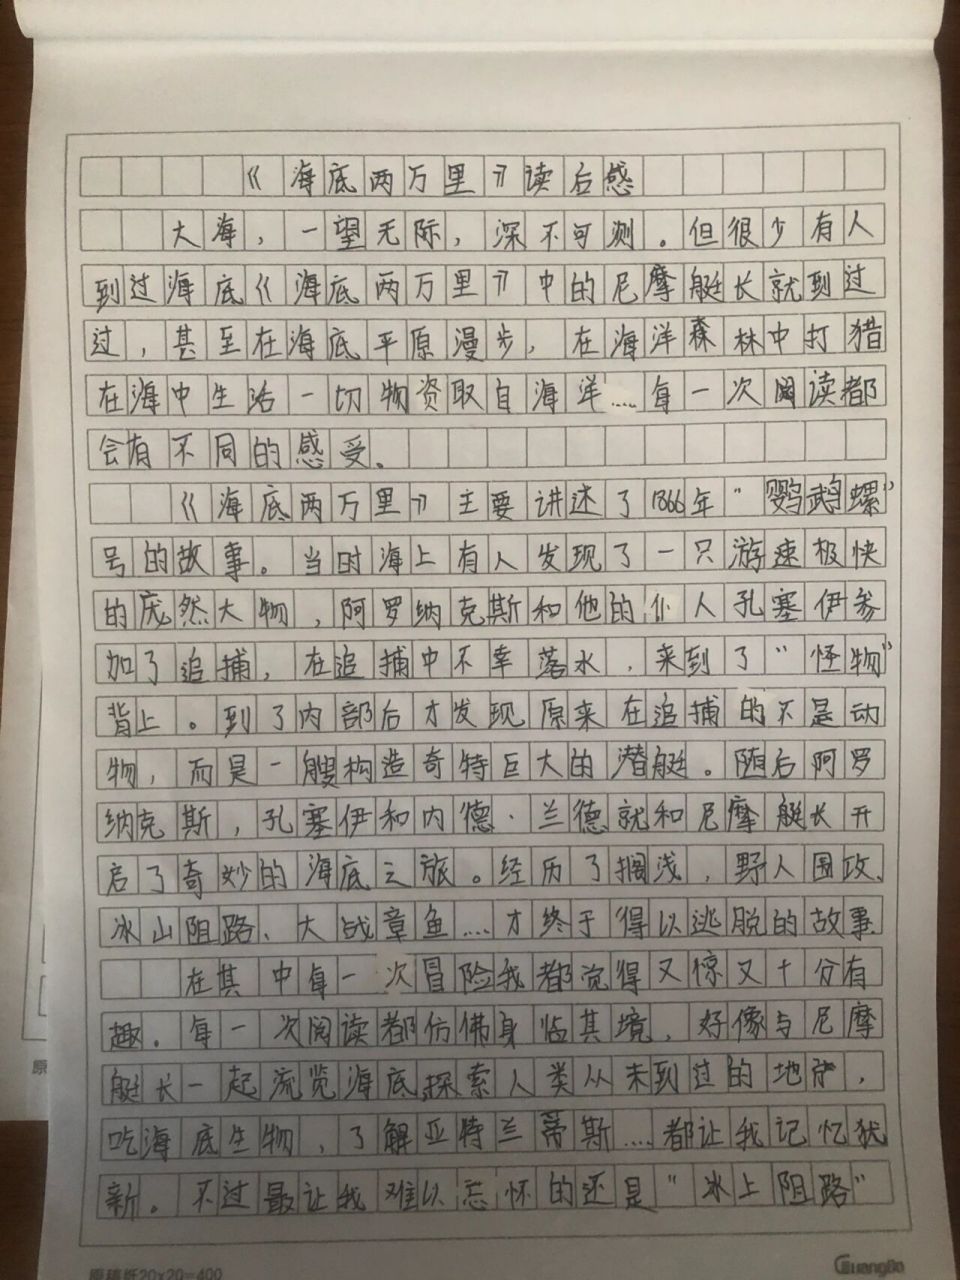 《海底两万里》读后感
大海，一望无际，深不可测。但很少有人
到过海底《海底两万里》中的尼摩艇长就到过
过，甚至在海底平原漫步，在海洋森林中打猎
在海中生活一切物资取自海洋....每一次阅读都
会有不同的感受。
《海底两万里》主要讲述了1866年"鹦鹉螺"
号的故事。当时海上有人发现了一只游速极快
的庞然大物，阿罗纳克斯和他的仆人孔塞伊参
加了追捕，在追捕中不幸落水，来到了"怪物"
背上。到了内部后才发现原来在追捕的不是动
物，而是一艘构造奇特巨大的潜艇。随后阿罗
纳克斯，孔塞伊和内德·兰德就和尼摩艇长开
启了奇妙的海底之旅。经历了搁浅，野人围攻、
冰山阻路、大战章鱼....才终于得以逃脱的故事
在其中每一次冒险我都觉得又惊又十分有
趣。每一次阅读都仿佛身临其境，好像与尼摩
艇长一起流览海底，探索人类从未到过的地，
吃海底生物，了解亚特兰蒂斯....都让我记忆犹
新。不过最让我难以忘怀的还是"冰上阻路"
原稿纸20×20=400
Guangbo